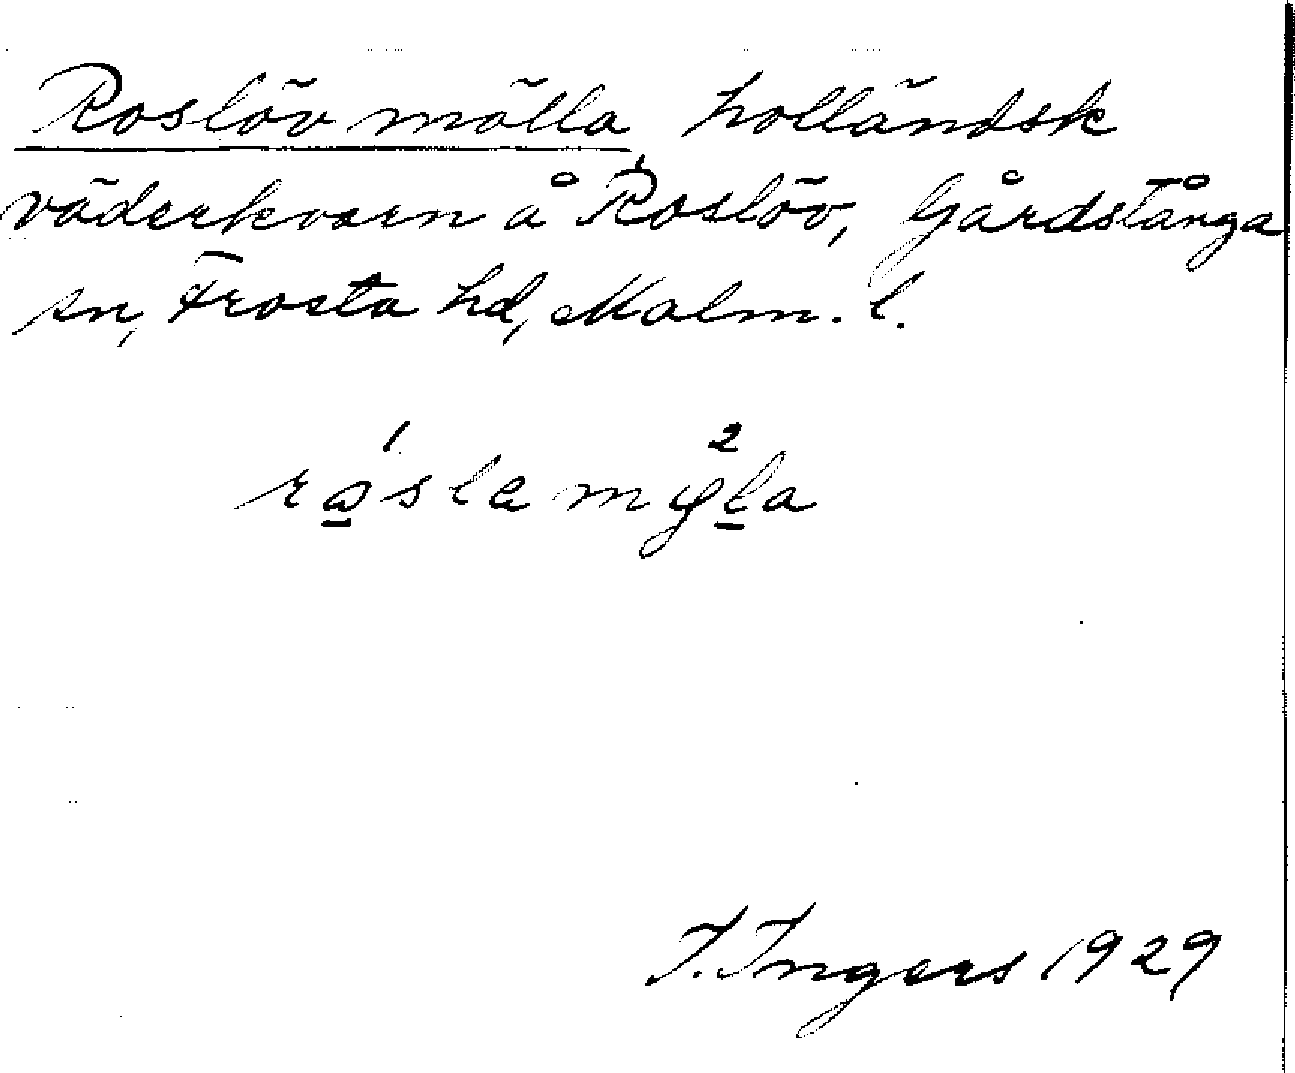 Roslöv mölla holländsk
väderkvarn å Roslöv, Gårdstånga
sn, Frosta hd, Malm. l.
I. Ingers 1929